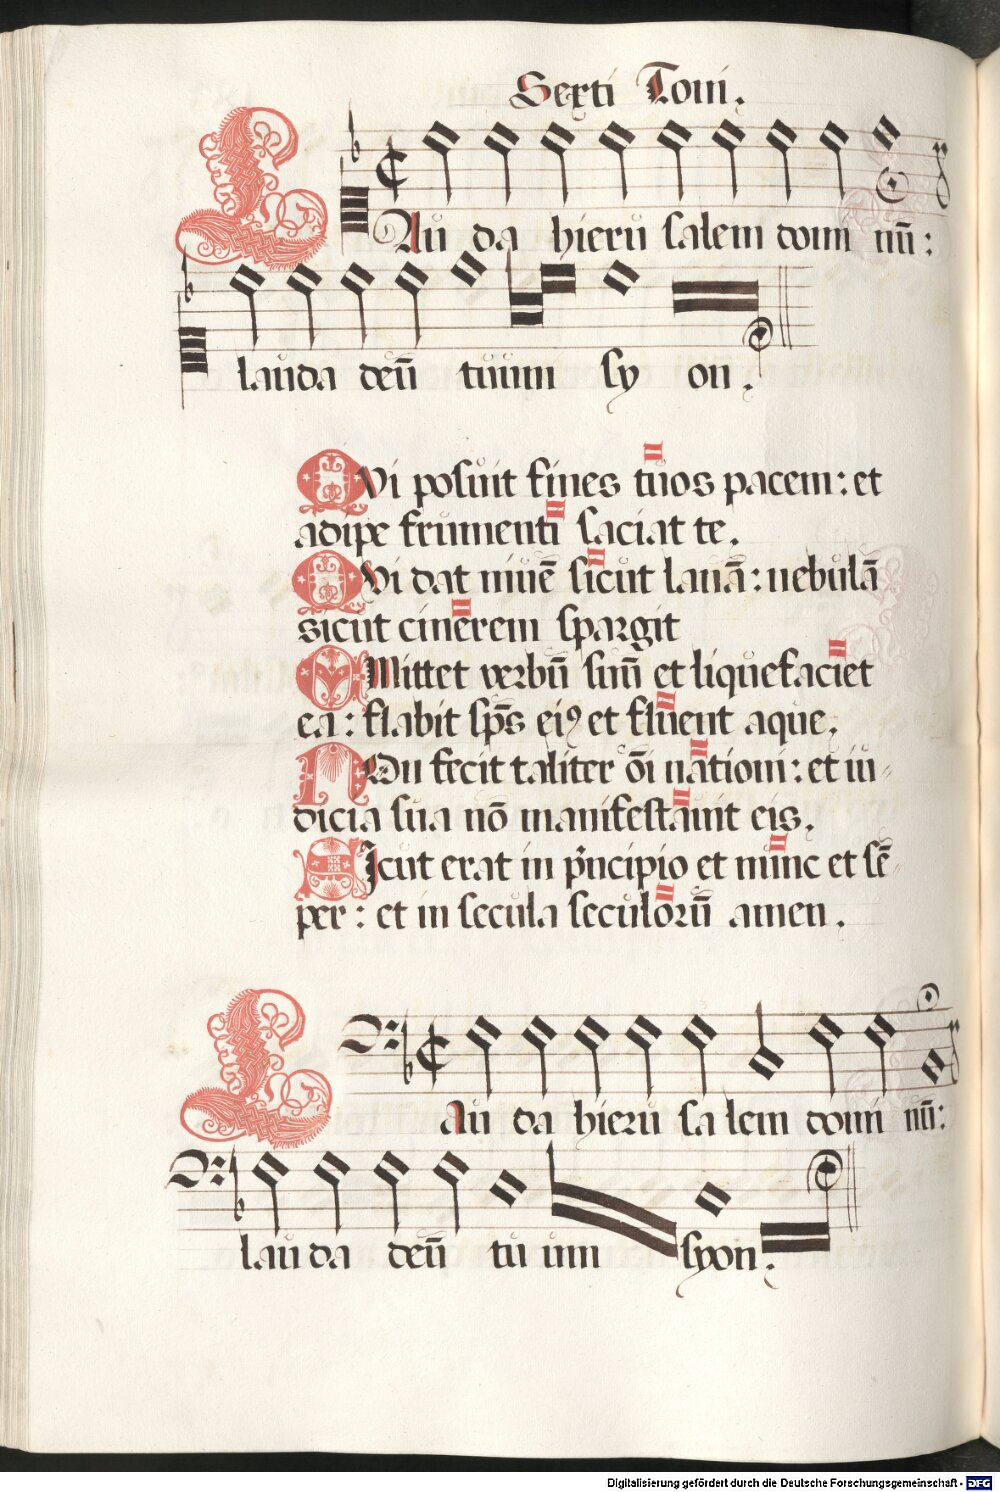 Sexti Toni.
LAuda hierusalem dominū:
lauda deū tuum syon.
QVi posuit fines tuos pacem: et
adipe frumenti saciat te.
QVi dat niuē sicut lanā: nebulā
sicut cinerem spargit
EMittet verbū suū et liquefaciet
ea: flabit sp̄s eiꝰ et fluent aque.
NOn fecit taliter ōi nationi: et iu-
dicia sua nō manifestauit eis.
SIcut erat in pͥncipio et nunc et sē-
per: et in secula seculorū amen.
LAuda hierusalem dominū:
lauda deū tuum syon.
Digitalisierung gefördert durch die Deutsche Forschungsgemeinschaft - DFG